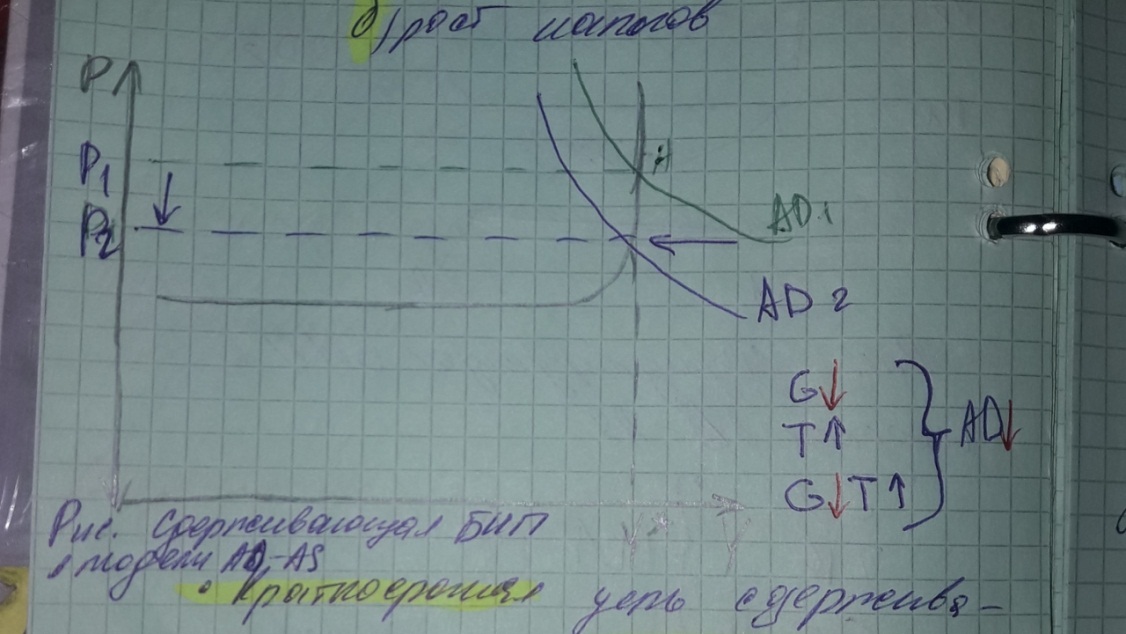 б) рост налогов
P
P1
A
AD1
P2
AD 2
G↓
T↑
AD↓
G↓T↑
Y* Y
Рис. Сдерживающая БНП
в модели AD-AS
• Краткосрочная цель сдержива-